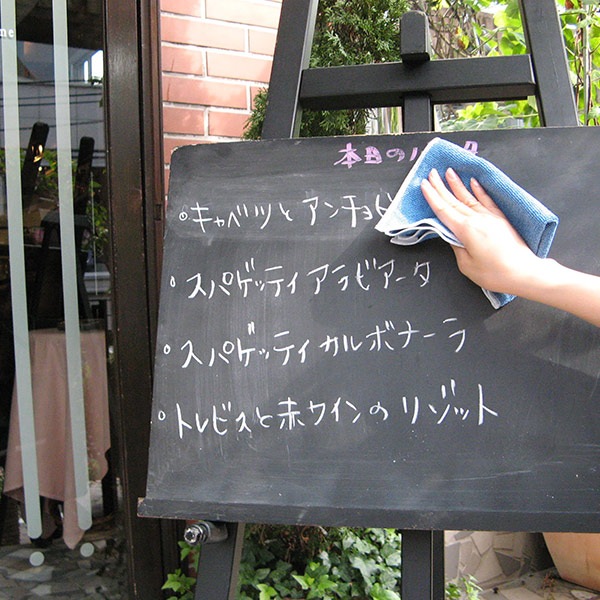 本日の
・キャベツとアンチョビ
・スパゲッティアラビアータ
・スパゲッティカルボナーラ
・トレビスと赤ワインのリゾット